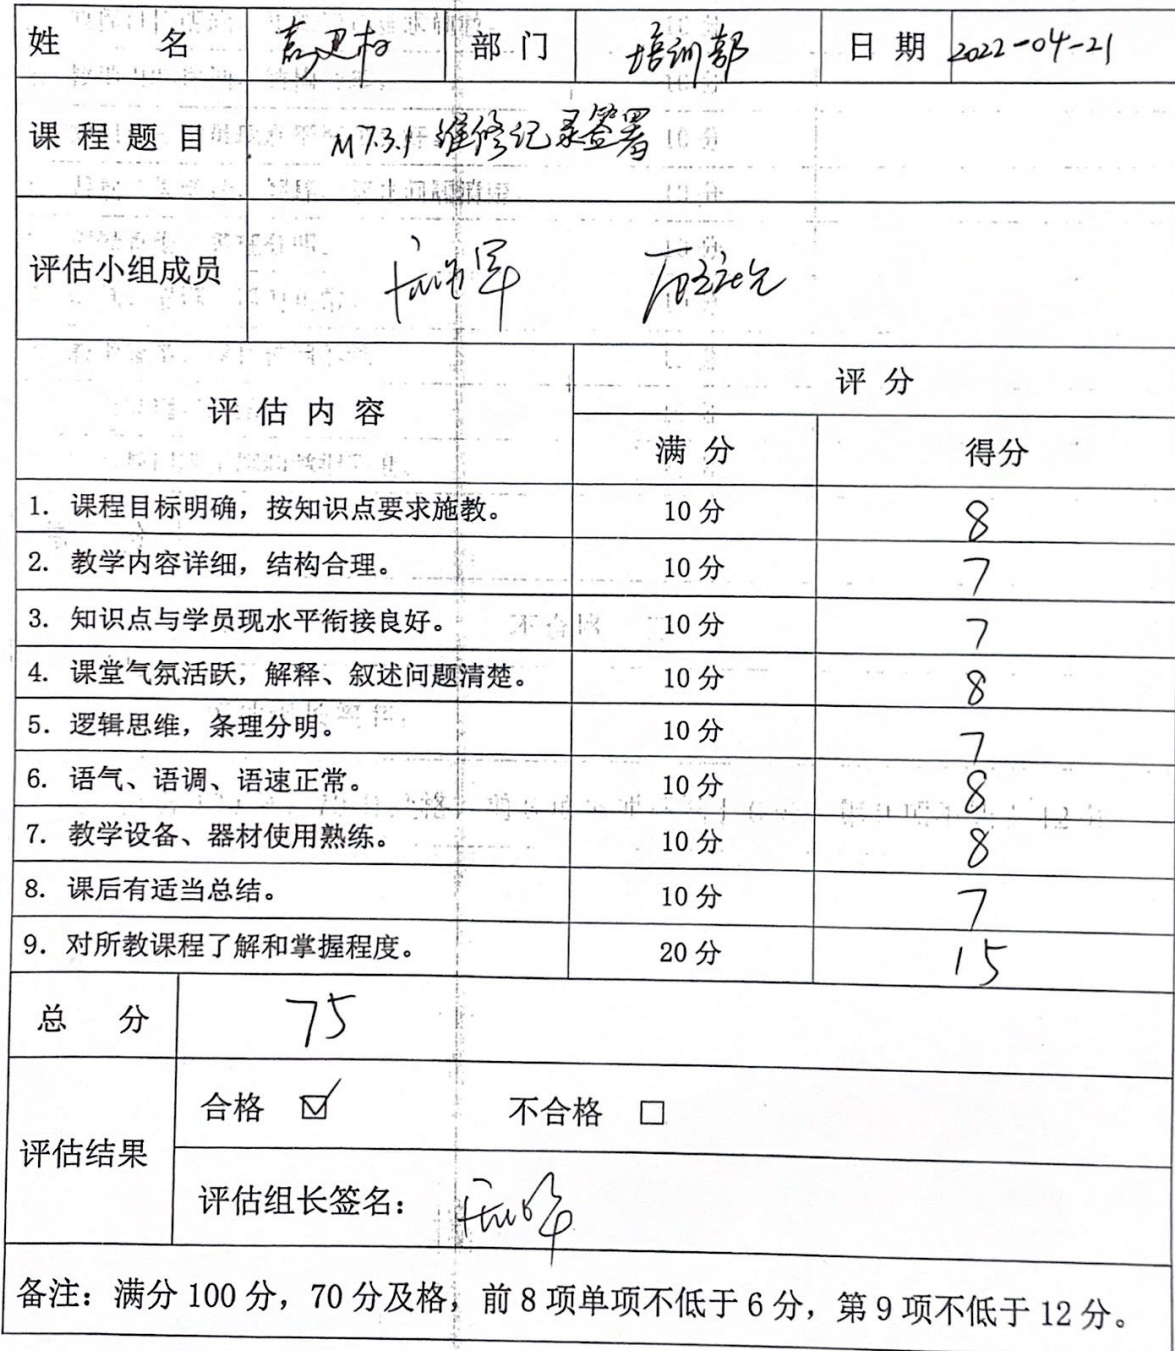 姓 名 部门 培训部 日期 2022-04-21
课程题目 M7.3.1 维修记录签署
评估小组成员
评估内容 评分
满分 得分
1. 课程目标明确，按知识点要求施教。 10分 8
2. 教学内容详细，结构合理。 10分 7
3. 知识点与学员现水平衔接良好。 10分 7
4. 课堂气氛活跃，解释、叙述问题清楚。 10分 8
5. 逻辑思维，条理分明。 10分 7
6. 语气、语调、语速正常。 10分 8
7. 教学设备、器材使用熟练。 10分 8
8. 课后有适当总结。 10分 7
9. 对所教课程了解和掌握程度。 20分 15
总 分 75
评估结果 合格 ☑ 不合格 □
评估组长签名：
备注：满分100分，70分及格，前8项单项不低于6分，第9项不低于12分。